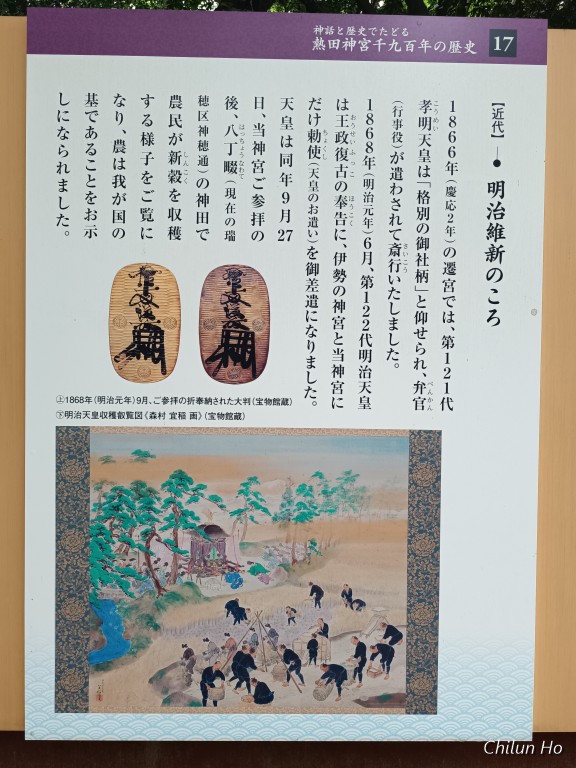 神話と歴史でたどる
熱田神宮千九百年の歴史
17
【近代】
明治維新のころ
1866年（慶応2年）の遷宮では、第121代
孝明天皇は「格別の御社柄」と仰せられ、弁官
（行事役）が遣わされて斎行いたしました。
1868年（明治元年）6月、第122代明治天皇
は王政復古の奉告に、伊勢の神宮と当神宮に
だけ勅使（天皇のお遣い）を御差遣になりました。
天皇は同年9月27
日、当神宮ご参拝の
後、八丁畷（現在の瑞
穂区神穂通）の神田で
農民が新穀を収穫
する様子をご覧に
なり、農は我が国の
基であることをお示
しになられました。
こうめい
べんかん
さいこう
おうせいふっこ
ほうこく
ちょくし
はっちょうなわて
しんこく
㊤1868年（明治元年）9月、ご参拝の折奉納された大判（宝物館蔵）
㊦明治天皇収穫叡覧図《森村 宜稲 画》（宝物館蔵）
Chilun Ho